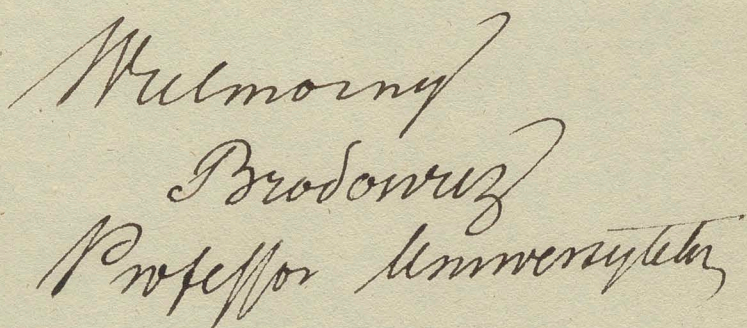 Wielmożny
Brodowicz
Professor Uniwersytetu